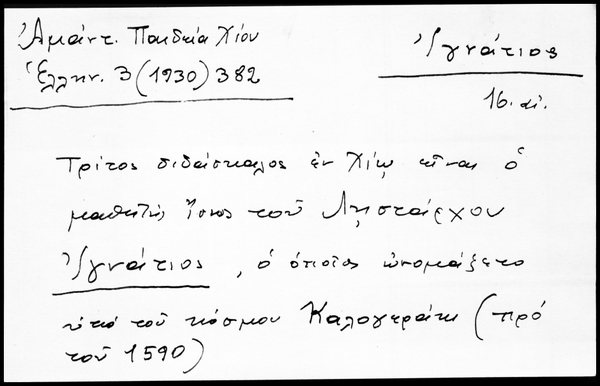 Ἀμάντ. Παιδεία Χίου
Ἑλλην. 3 (1930) 382
Ἰγνάτιος
16. αἰ.
Τρίτος διδάσκαλος ἐν Χίῳ εἶναι ὁ
μαθητὴς ἴσως τοῦ Ληστάρχου
Ἰγνάτιος, ὁ ὁποῖος ὠνομάζετο
ὑπὸ τοῦ κόσμου Καλογεράκι (πρό
τοῦ 1590)